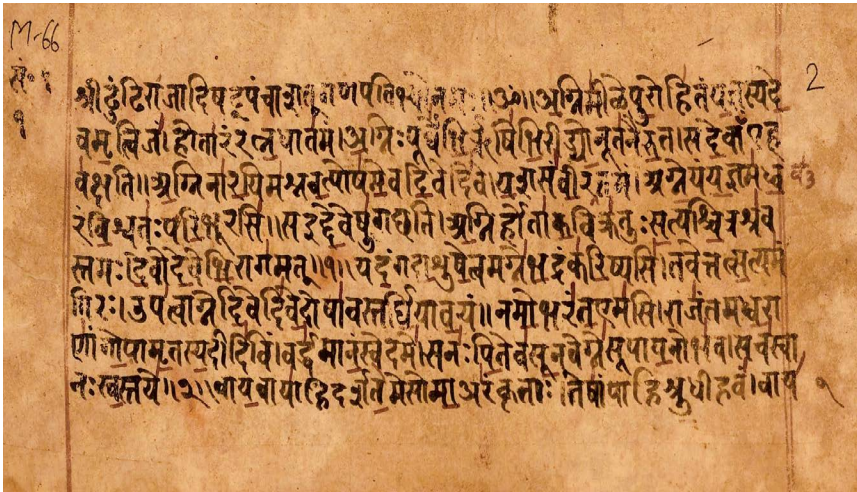 M-66
सं॰ १
१
2
श्री ढुंढिराजादिषट्पंचाशतगणपतिभ्यो नमः ॥ ॐ ॥ अग्निमीळे पुरोहितं यज्ञस्य दे
वमृत्विजं । होतारं रत्नधातमं । अग्निः पूर्वेभिर्ऋषिभिरीड्यो नूतनैरुत । स देवाँ एह
वक्षति ॥ अग्निना रयिमश्नवत्पोषमेव दिवेदिवे । यशसं वीरवत्तमं । अग्ने यं यज्ञमध्व
रं विश्वतः परिभूरसि ॥ स इद्देवेषु गछति । अग्निर्होता कविक्रतुः सत्यश्चित्रश्रव
स्तमः । देवो देवेभिरागमत् ॥ १ ॥ यदंग दाशुषे त्वमग्ने भद्रं करिष्यसि । तवेत्तत्सत्यमं
गिरः । उप त्वाग्ने दिवेदिवे दोषावस्तर्धिया वयं ॥ नमो भरंत एमसि । राजंतमध्वरा
णां गोपामृतस्य दीदिविं । वर्द्धमानं स्वे दमे । स नः पितेव सूनवेग्ने सूपायनो भव । सचस्वा
नः स्वस्तये ॥ २ ॥ वायवायाहि दर्शतेमे सोमा अरंकृताः । तेषां पाहि श्रुधी हवं । वाय
१